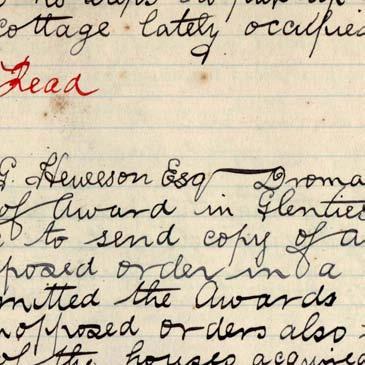 cottage lately occupied
Read
G. Heweson Esq — Droma
of Award in Glenties
to send copy of a
pposed order in a
mitted the Awards
nopposed orders also
of the houses acquired